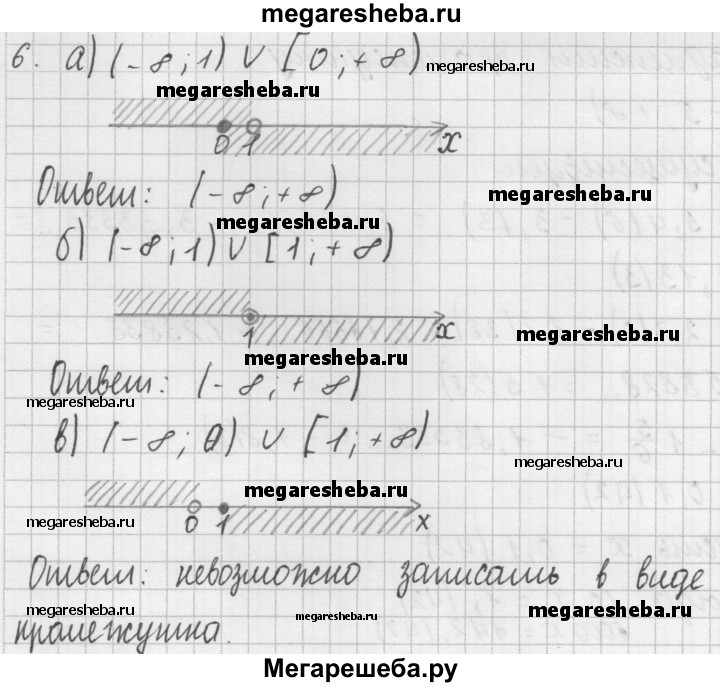 megaresheba.ru
6. а) (-∞; 1) ∪ [0; +∞) megaresheba.ru
megaresheba.ru
0 1 x
Ответ: (-∞; +∞) megaresheba.ru
megaresheba.ru
б) (-∞; 1) ∪ [1; +∞)
1 x megaresheba.ru
megaresheba.ru
Ответ: (-∞; +∞)
megaresheba.ru megaresheba.ru
в) (-∞; 0) ∪ [1; +∞)
megaresheba.ru
megaresheba.ru
megaresheba.ru 0 1 x megaresheba.ru
Ответ: невозможно записать в виде
megaresheba.ru megaresheba.ru megaresheba.ru
промежутка.
Мегарешеба.ру